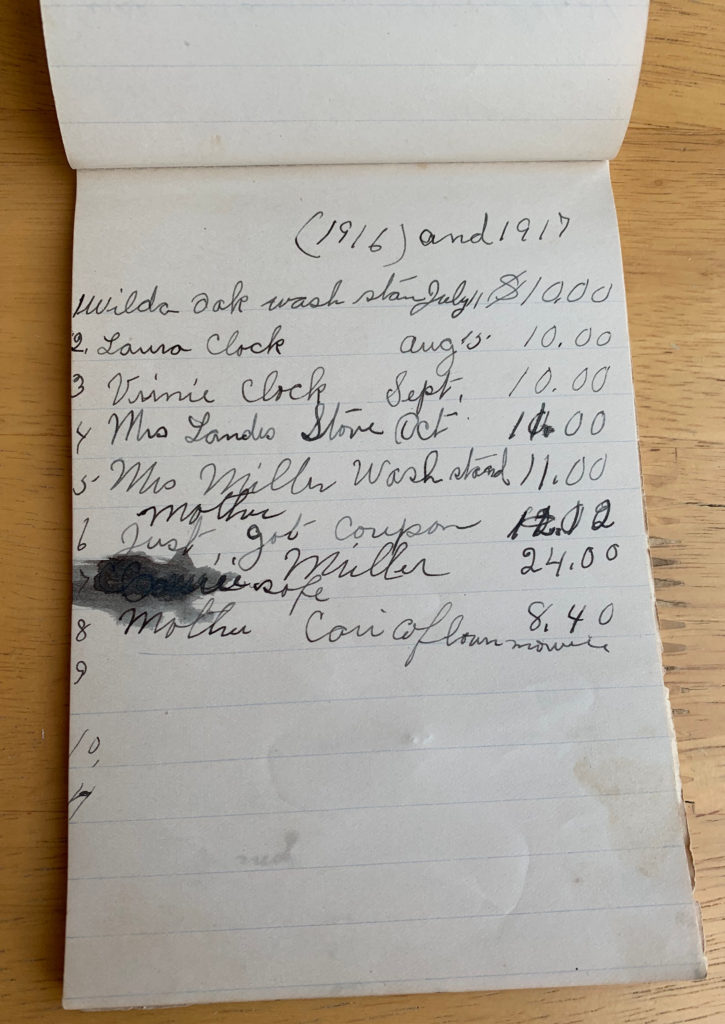 (1916) and 1917
1 Wilda oak wash stan July 11 $10.00
2. Laura Clock aug 15 10.00
3 Vinnie Clock Sept. 10.00
4 Mrs Landes Stove Oct 00
5 Mrs Miller Wash stand 11.00
Mother
6 Just, got Coupon 12.02
7 Miller 24.00
safe
8 Mother 8.40
9
10.